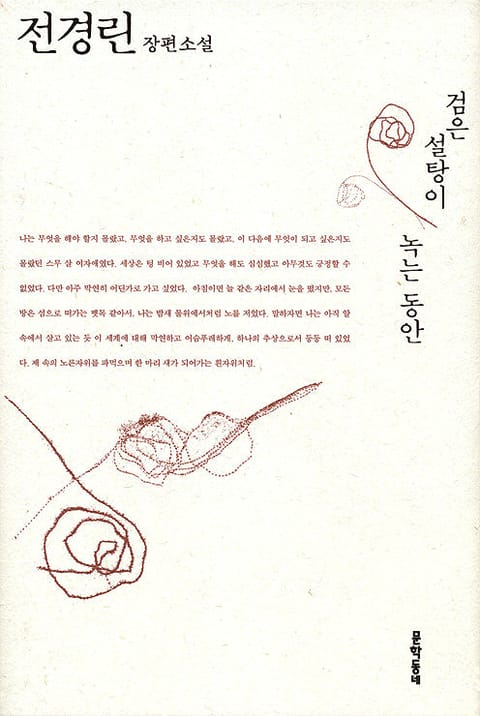 전경린 장편소설
검은
설탕이
녹는 동안
나는 무엇을 해야 할지 몰랐고, 무엇을 하고 싶은지도 몰랐고, 이 다음에 무엇이 되고 싶은지도
몰랐던 스무 살 여자애였다. 세상은 텅 비어 있었고 무엇을 해도 심심했고 아무것도 긍정할 수
없었다. 다만 아주 막연히 어딘가로 가고 싶었다. 아침이면 늘 같은 자리에서 눈을 떴지만, 모든
방은 섬으로 떠가는 뗏목 같아서, 나는 밤새 물위에서처럼 노를 저었다. 말하자면 나는 아직 알
속에서 살고 있는 듯 이 세계에 대해 막연하고 어슴푸레하게, 하나의 추상으로서 둥둥 떠 있었
다. 제 속의 노른자위를 파먹으며 한 마리 새가 되어가는 흰자위처럼.
문학동네